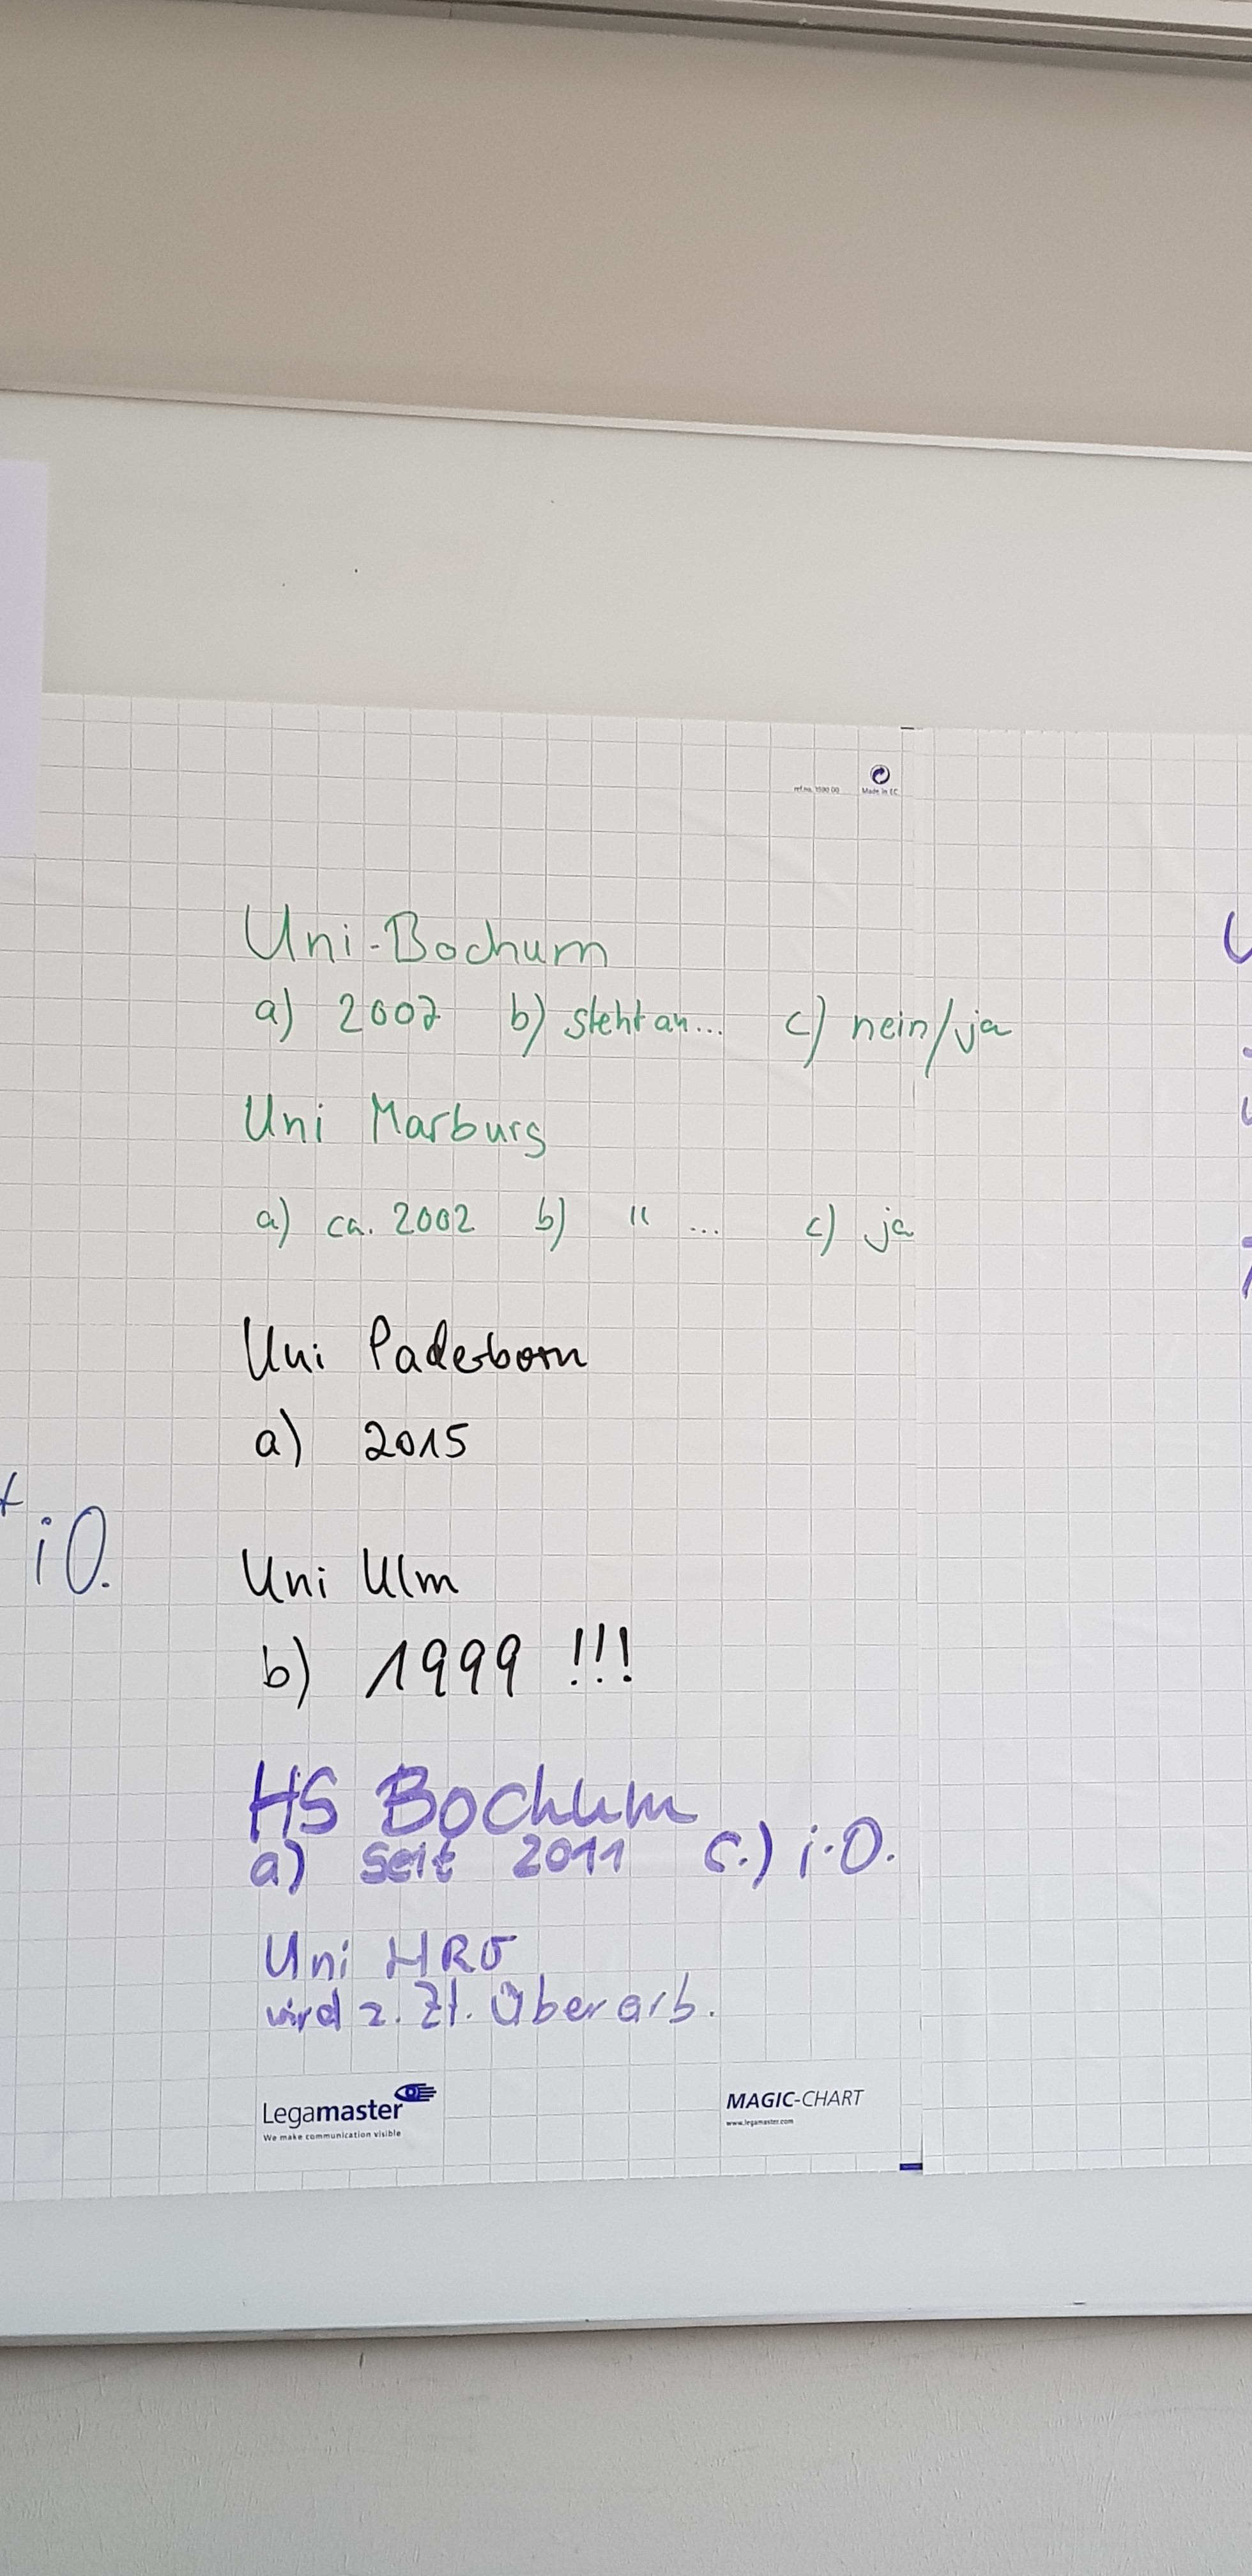 ref.no. 1590 00 Made in EC
Uni-Bochum
a) 2007 b) steht an... c) nein/ja
Uni Marburg
a) ca. 2002 b) " ... c) ja
Uni Paderborn
a) 2015
iO.
Uni Ulm
b) 1999 !!!
HS Bochum
a) seit 2011 c.) i.O.
Uni HRO
wird z. Zt. überarb.
Legamaster
We make communication visible
MAGIC-CHART
www.legamaster.com